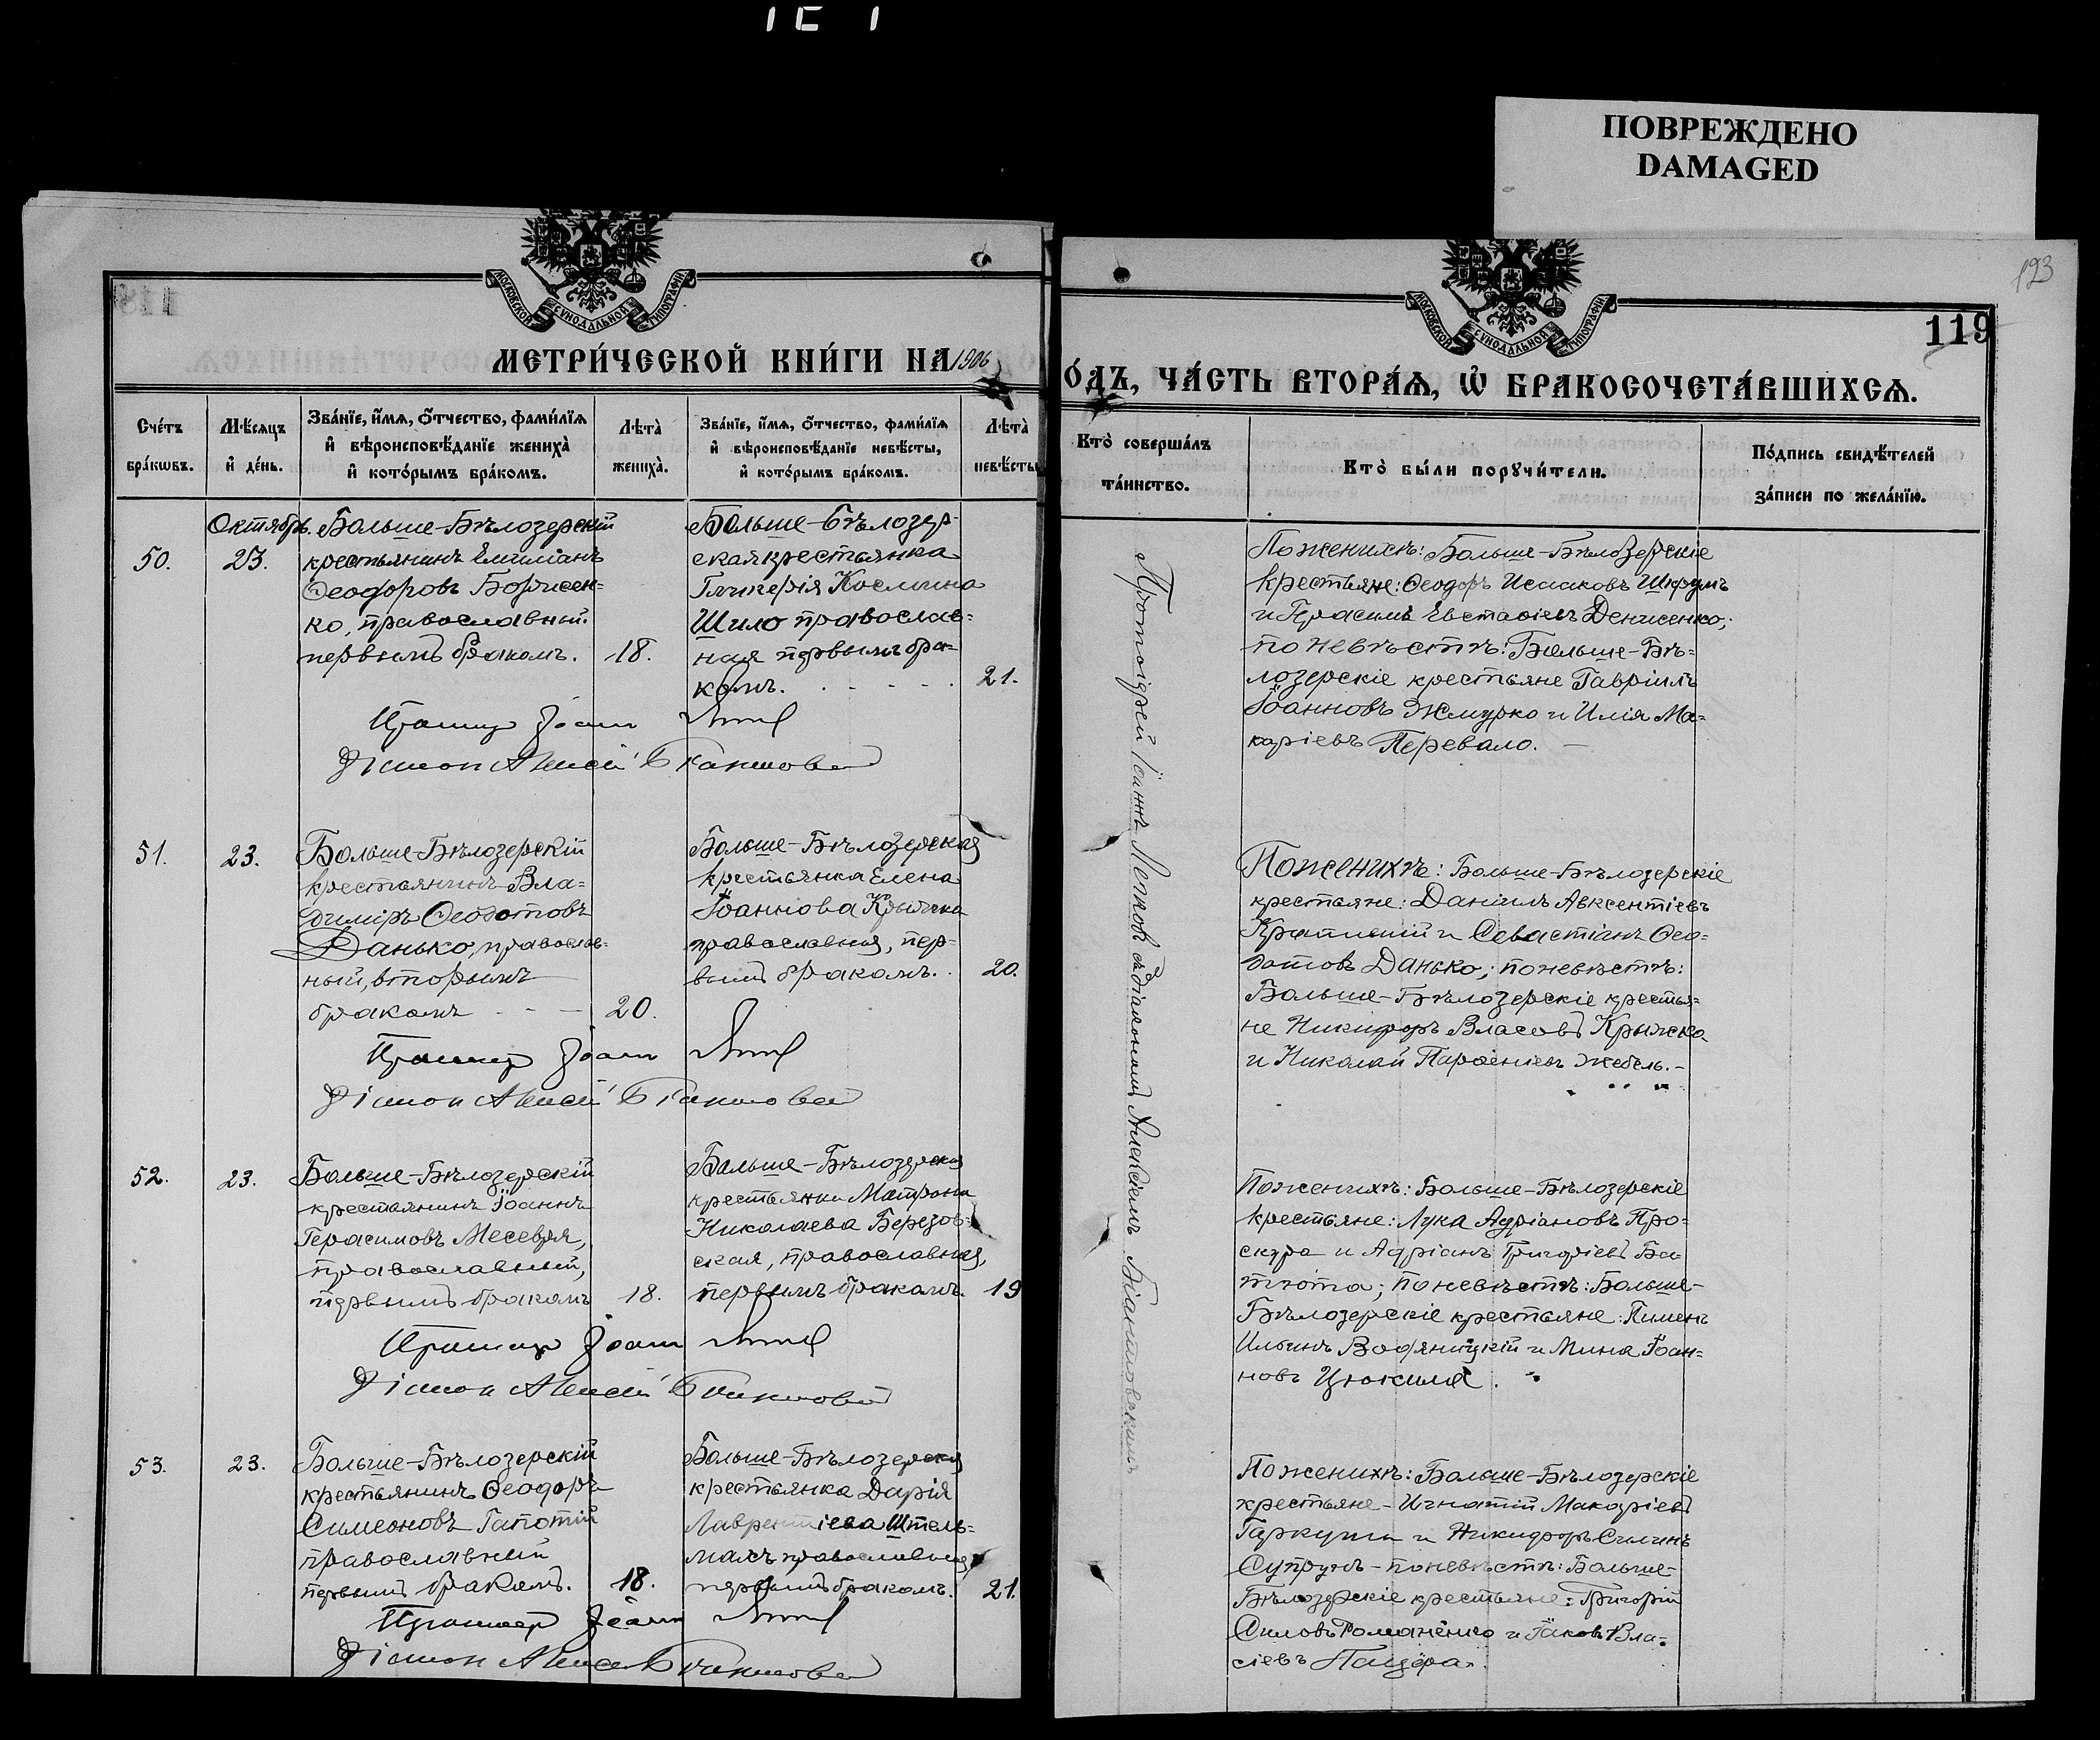 ПОВРЕЖДЕНО
DAMAGED
123
119
МОСКОВСКОЙ СѴНОДАЛЬНОЙ ТИПОГРАФІИ
МЕТРИ́ЧЕСКОЙ КНИ́ГИ НА 1906
МОСКОВСКОЙ СѴНОДАЛЬНОЙ ТИПОГРАФІИ
О́ДЪ, ЧА́СТЬ ВТОРА́Ѧ, Ѡ҆ БРАКОСОЧЕТА́ВШИХСѦ.
Сче́тъ бра́кѡвъ.
Мѣ́сѧцъ и҆ де́нь.
Зва́нїе, и҆́мѧ, ѻ҆́тчество, фами́лїѧ и҆ вѣроисповѣ́данїе жениха̀ и҆ кото́рымъ бра́комъ.
Лѣта̀ жениха̀.
Зва́нїе, и҆́мѧ, ѻ҆́тчество, фами́лїѧ и҆ вѣроисповѣ́данїе невѣ́сты, и҆ кото́рымъ бра́комъ.
Лѣта̀ невѣ́сты
Кто̀ соверша́лъ та́инство.
Кто̀ бы́ли порꙋчи́тели.
По́дпись свидѣ́телей за́писи по жела́нїю.
50.
Октябрь.
23.
Больше-Бѣлозерскій
крестьянинъ Емиліанъ
Ѳеодоровъ Борисен-
ко, православный.
первымъ бракомъ.
18.
Больше-Бѣлозер-
ская крестьянка
Гликерія Космина
Шило православ-
ная первымъ бра-
комъ.
21.
По женихѣ: Больше-Бѣлозерскіе
крестьяне: Ѳеодоръ Исааковъ Шкрумъ
и Герасимъ Евстаѳіевъ Денисенко;
по невѣстѣ: Больше-Бѣ-
лозерскіе крестьяне Гавріилъ
Іоанновъ Жмурко и Илія Ма-
каріевъ Перевало.
Іоаннъ
Діаконъ Алексѣй
Протоіерей Іоаннъ съ діакономъ Алексіемъ
51.
23.
Больше-Бѣлозерскій
крестьянинъ Вла-
диміръ Ѳеодотовъ
Данько, православ-
ный, вторымъ
бракомъ
20.
Больше-Бѣлозерская
крестьянка Елена
Іоаннова Крыжка
православная, пер-
вымъ бракомъ.
20.
По женихѣ: Больше-Бѣлозерскіе
крестьяне: Даніилъ Авксентіевъ
и Севастіанъ Ѳео-
дотовъ Данько; по невѣстѣ:
Больше-Бѣлозерскіе крестья-
не Никифоръ Власовъ Крыжка
и Николай Парѳеніевъ Жебель.
Іоаннъ
Діаконъ Алексѣй
52.
23.
Больше-Бѣлозерскій
крестьянинъ Іоаннъ
Герасимовъ Месевря,
православный,
первымъ бракомъ
18.
Больше-Бѣлозерская
крестьянка Матрона
Николаева Березов-
ская, православная,
первымъ бракомъ.
19
По женихѣ: Больше-Бѣлозерскіе
крестьяне: Лука Адріановъ Про-
скура и Адріанъ Григоріевъ Ба-
тюта; по невѣстѣ: Больше-
Бѣлозерскіе крестьяне: Пименъ
Ильинъ Водяницкій и Мина Іоан-
новъ
Іоаннъ
Діаконъ Алексѣй
53.
23.
Больше-Бѣлозерскій
крестьянинъ Ѳеодоръ
Симеоновъ Гапотій
православный
первымъ бракомъ.
18.
Больше-Бѣлозерская
крестьянка Дарія
Лаврентіева Штель-
махъ православная
первымъ бракомъ.
21.
По женихѣ: Больше-Бѣлозерскіе
крестьяне - Игнатій Макаріевъ
Гаркуша и Никифоръ Силинъ
Супрунъ - по невѣстѣ: Больше-
Бѣлозерскіе крестьяне: Григорій
Силовъ Романенко и Іаковъ Вла-
сіевъ Пацера.
Іоаннъ
Діаконъ Алексѣй